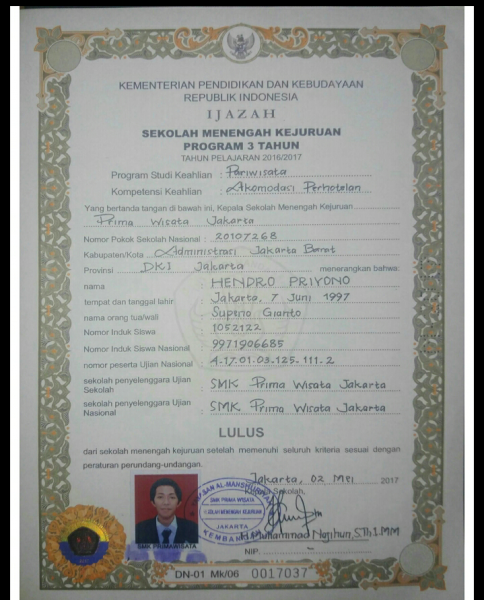 KEMENTERIAN PENDIDIKAN DAN KEBUDAYAAN
REPUBLIK INDONESIA
IJAZAH
SEKOLAH MENENGAH KEJURUAN
PROGRAM 3 TAHUN
TAHUN PELAJARAN 2016/2017
Program Studi Keahlian : Pariwisata
Kompetensi Keahlian : Akomodasi Perhotelan
Yang bertanda tangan di bawah ini, Kepala Sekolah Menengah Kejuruan
Prima Wisata Jakarta
Nomor Pokok Sekolah Nasional : 20107268
Kabupaten/Kota Administrasi Jakarta Barat
Provinsi DKI Jakarta menerangkan bahwa:
nama : HENDRO PRIYONO
tempat dan tanggal lahir : Jakarta, 7 Juni 1997
nama orang tua/wali : Supeno Gianto
Nomor Induk Siswa : 1052122
Nomor Induk Siswa Nasional : 9971906685
nomor peserta Ujian Nasional : 4-17-01-03-125-111-2
sekolah penyelenggara Ujian Sekolah : SMK Prima Wisata Jakarta
sekolah penyelenggara Ujian Nasional : SMK Prima Wisata Jakarta
LULUS
dari sekolah menengah kejuruan setelah memenuhi seluruh kriteria sesuai dengan
peraturan perundang-undangan.
Jakarta, 02 Mei 2017
Kepala Sekolah,
SMK PRIMA WISATA
SEKOLAH MENENGAH KEJURUAN
JAKARTA
KEMBANGAN
SMK PRIMAWISATA
Muhammad S.Th.I.MM
NIP. -
DN-01 Mk/06 0017037